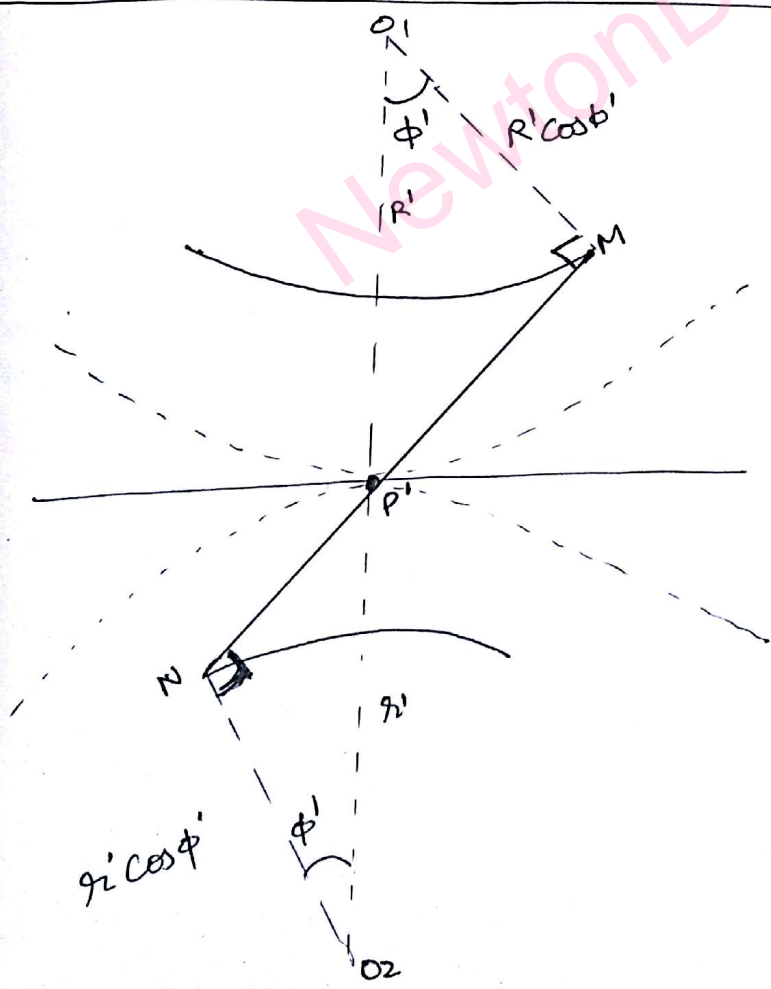 O1
NewtonD
ϕ'
R'cosϕ'
R'
M
P'
N
r'
ϕ'
r'cosϕ'
O2